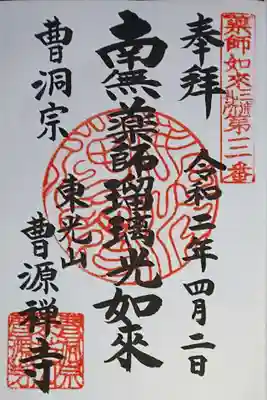 奉拝
薬師如来
第三番
令和二年四月二日
南無薬師瑠璃光如来
曹洞宗
東光山
曹源禅寺